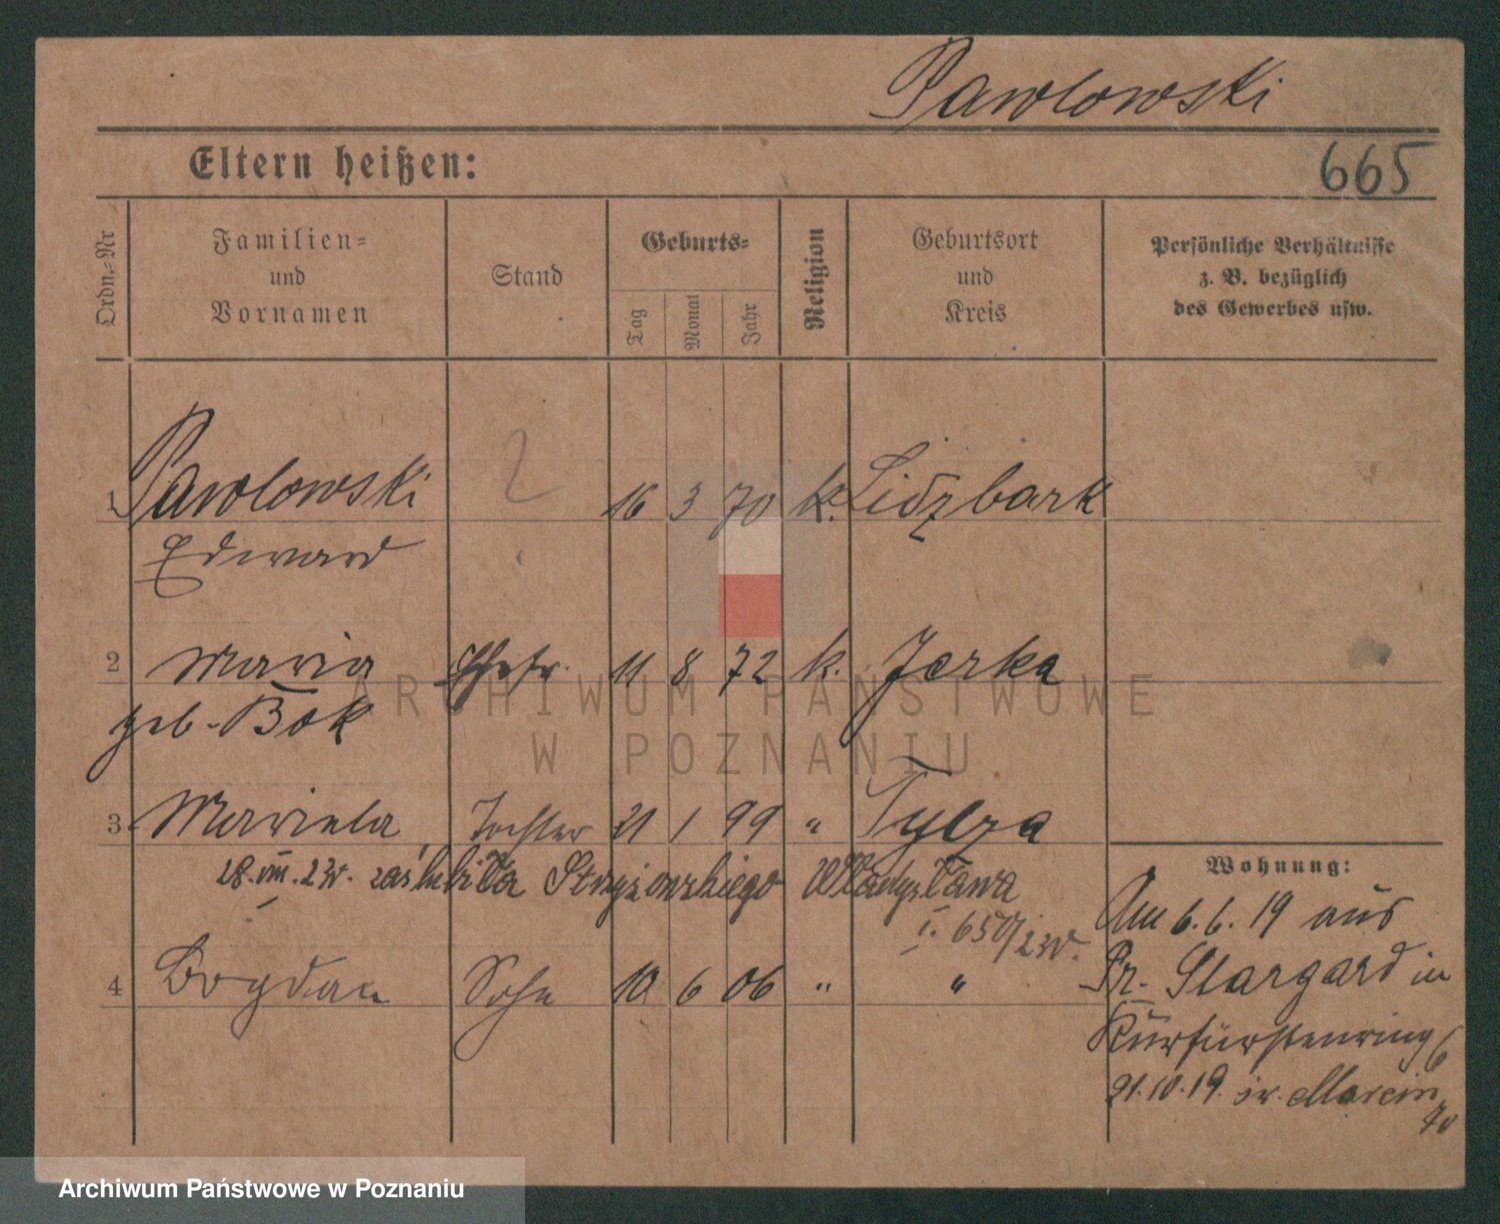 Pawlowski
Eltern heißen:
665
Ordn.-Nr
Familien-
und
Vornamen
Stand
Geburts-
Tag
Monat
Jahr
Religion
Geburtsort
und
Kreis
Persönliche Verhältnisse
z. B. bezüglich
des Gewerbes usw.
1 Pawlowski 16 3 70 k. Lidzbark
Edward
2 Maria Ehefr. 11 8 72 k. Jerka
geb. Bok
3 Mariela Tochter 21 1 99 " Tylza
28.VIII.23r. zaślubiła Władysława
i. 650/23r.
4 Bogdan Sohn 10 6 06 " "
Wohnung:
Am 6.6.19 aus
Pr. Stargard in
Kurfürstenring 6
21.10.19. św. Marcin
70
ARCHIWUM PAŃSTWOWE
W POZNANIU
Archiwum Państwowe w Poznaniu